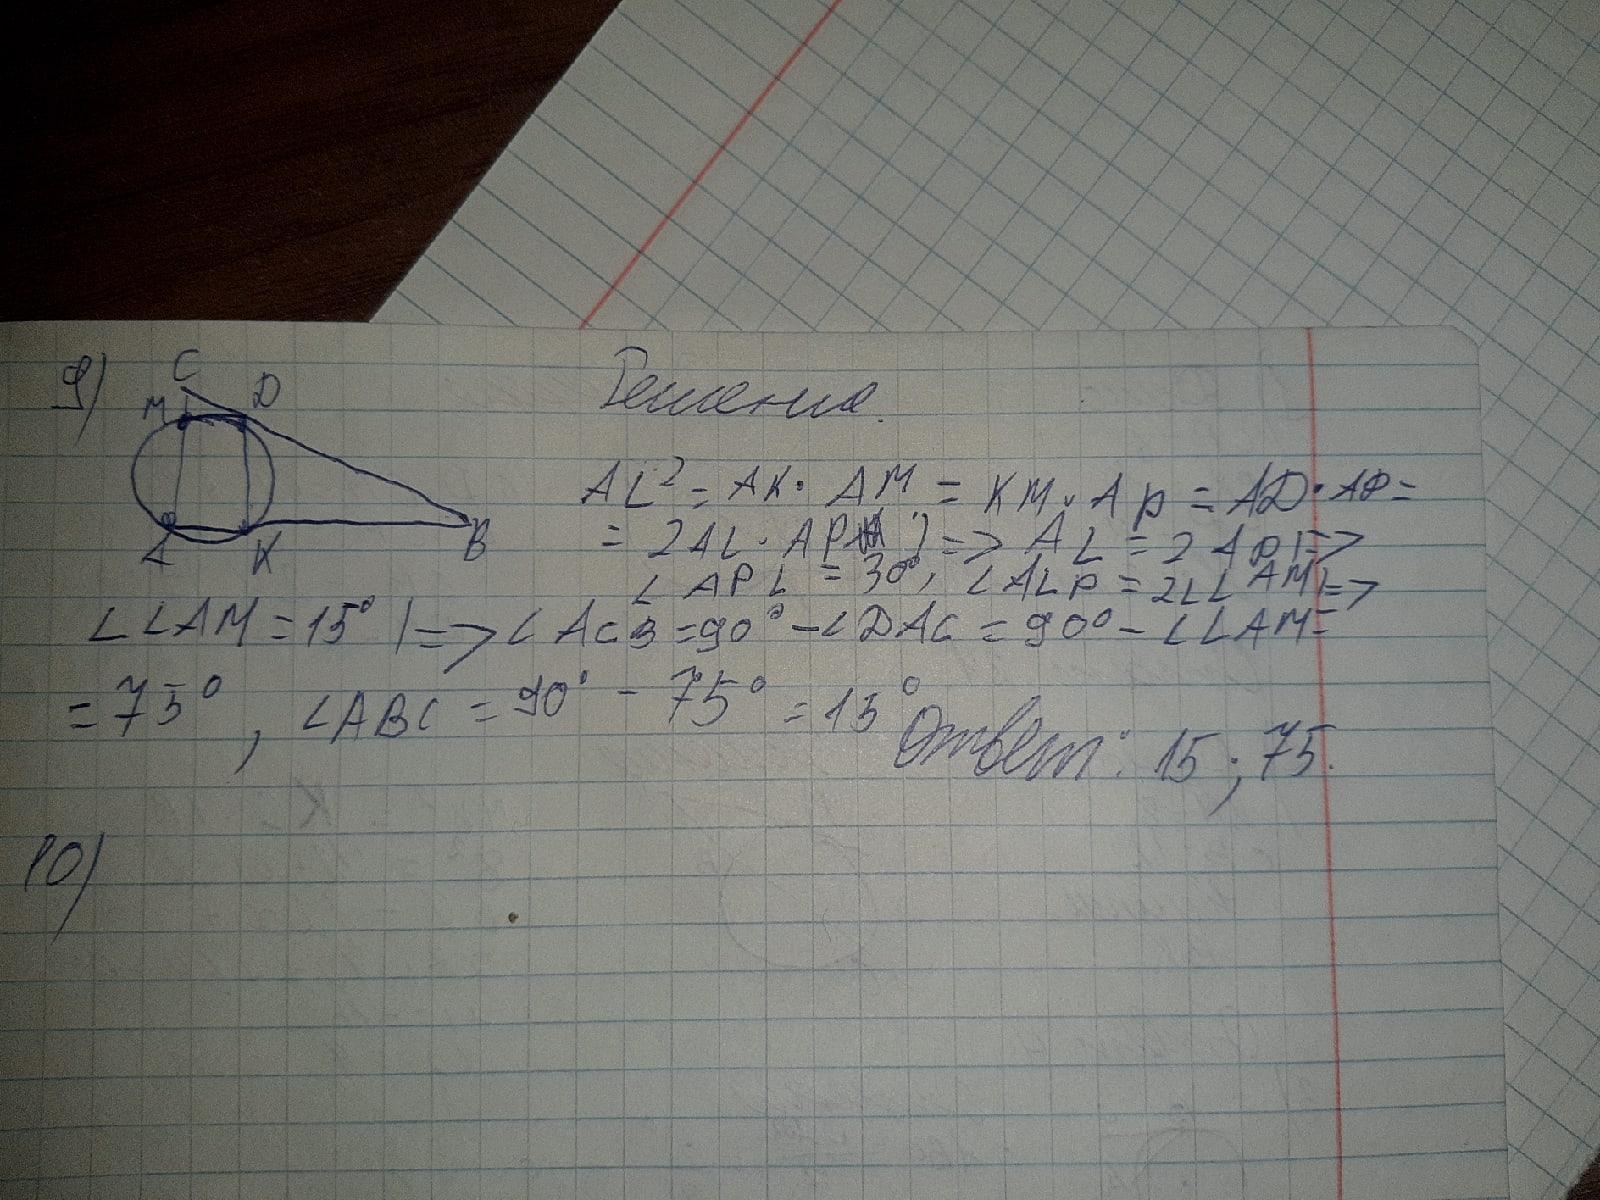 9)
C
M
D
A
K
B
Решение.
AL² = AK · AM = KM · AP = AD · AP =
= 2AL · AP | => AL = 2AP | =>
∠APL = 30°, ∠ALP = 2∠LAM | =>
∠LAM = 15° | => ∠ACB = 90° - ∠DAC = 90° - ∠LAM =
= 75°, ∠ABC = 90° - 75° = 15°
Ответ: 15; 75.
10)